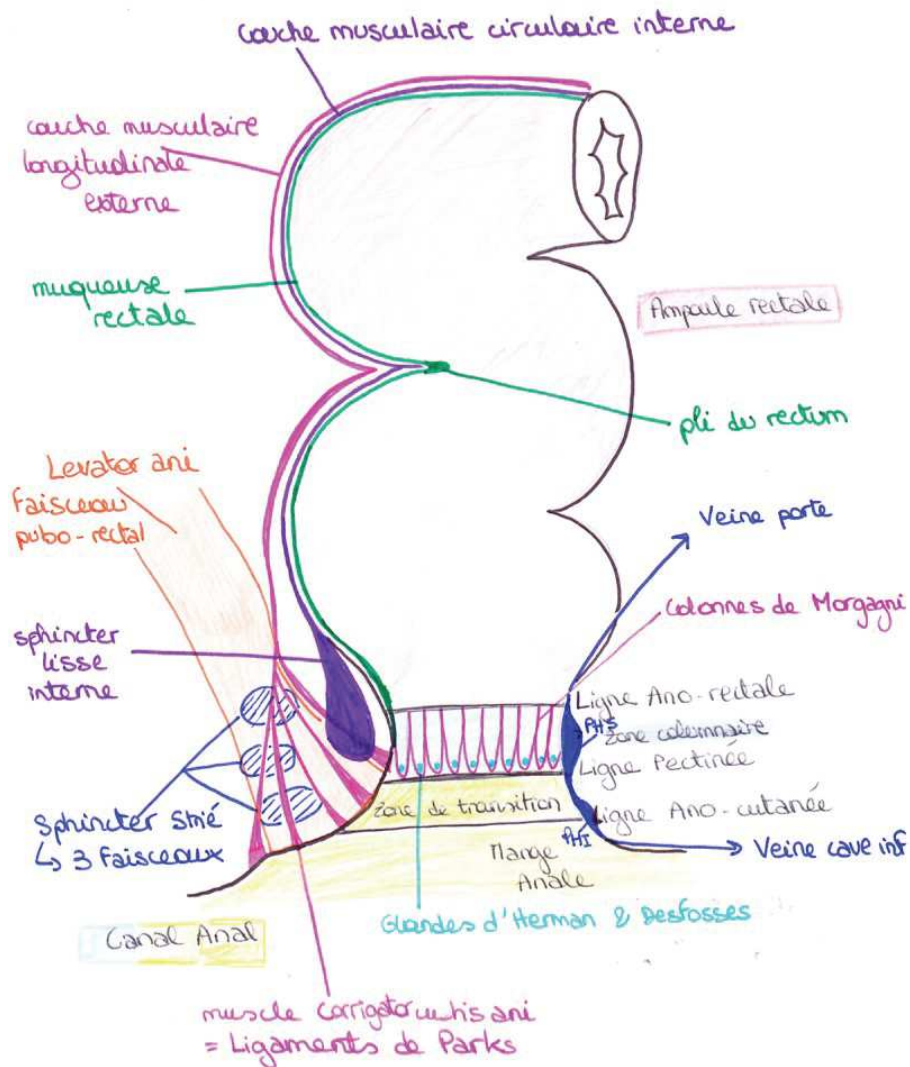 couche musculaire circulaire interne
couche musculaire
longitudinale
externe
muqueuse
rectale
Ampoule rectale
pli du rectum
Levator ani
Faisceau
pubo-rectal
Veine porte
Colonnes de Morgagni
sphincter
lisse
interne
Ligne Ano-rectale
PHS
Zone columnaire
Ligne Pectinée
Zone de transition
Ligne Ano-cutanée
Sphincter strié
↳ 3 Faisceaux
PHI
Veine cave inf
Marge
Anale
Glandes d'Herman & Desfosses
Canal Anal
muscle corrigator cutis ani
= Ligaments de Parks